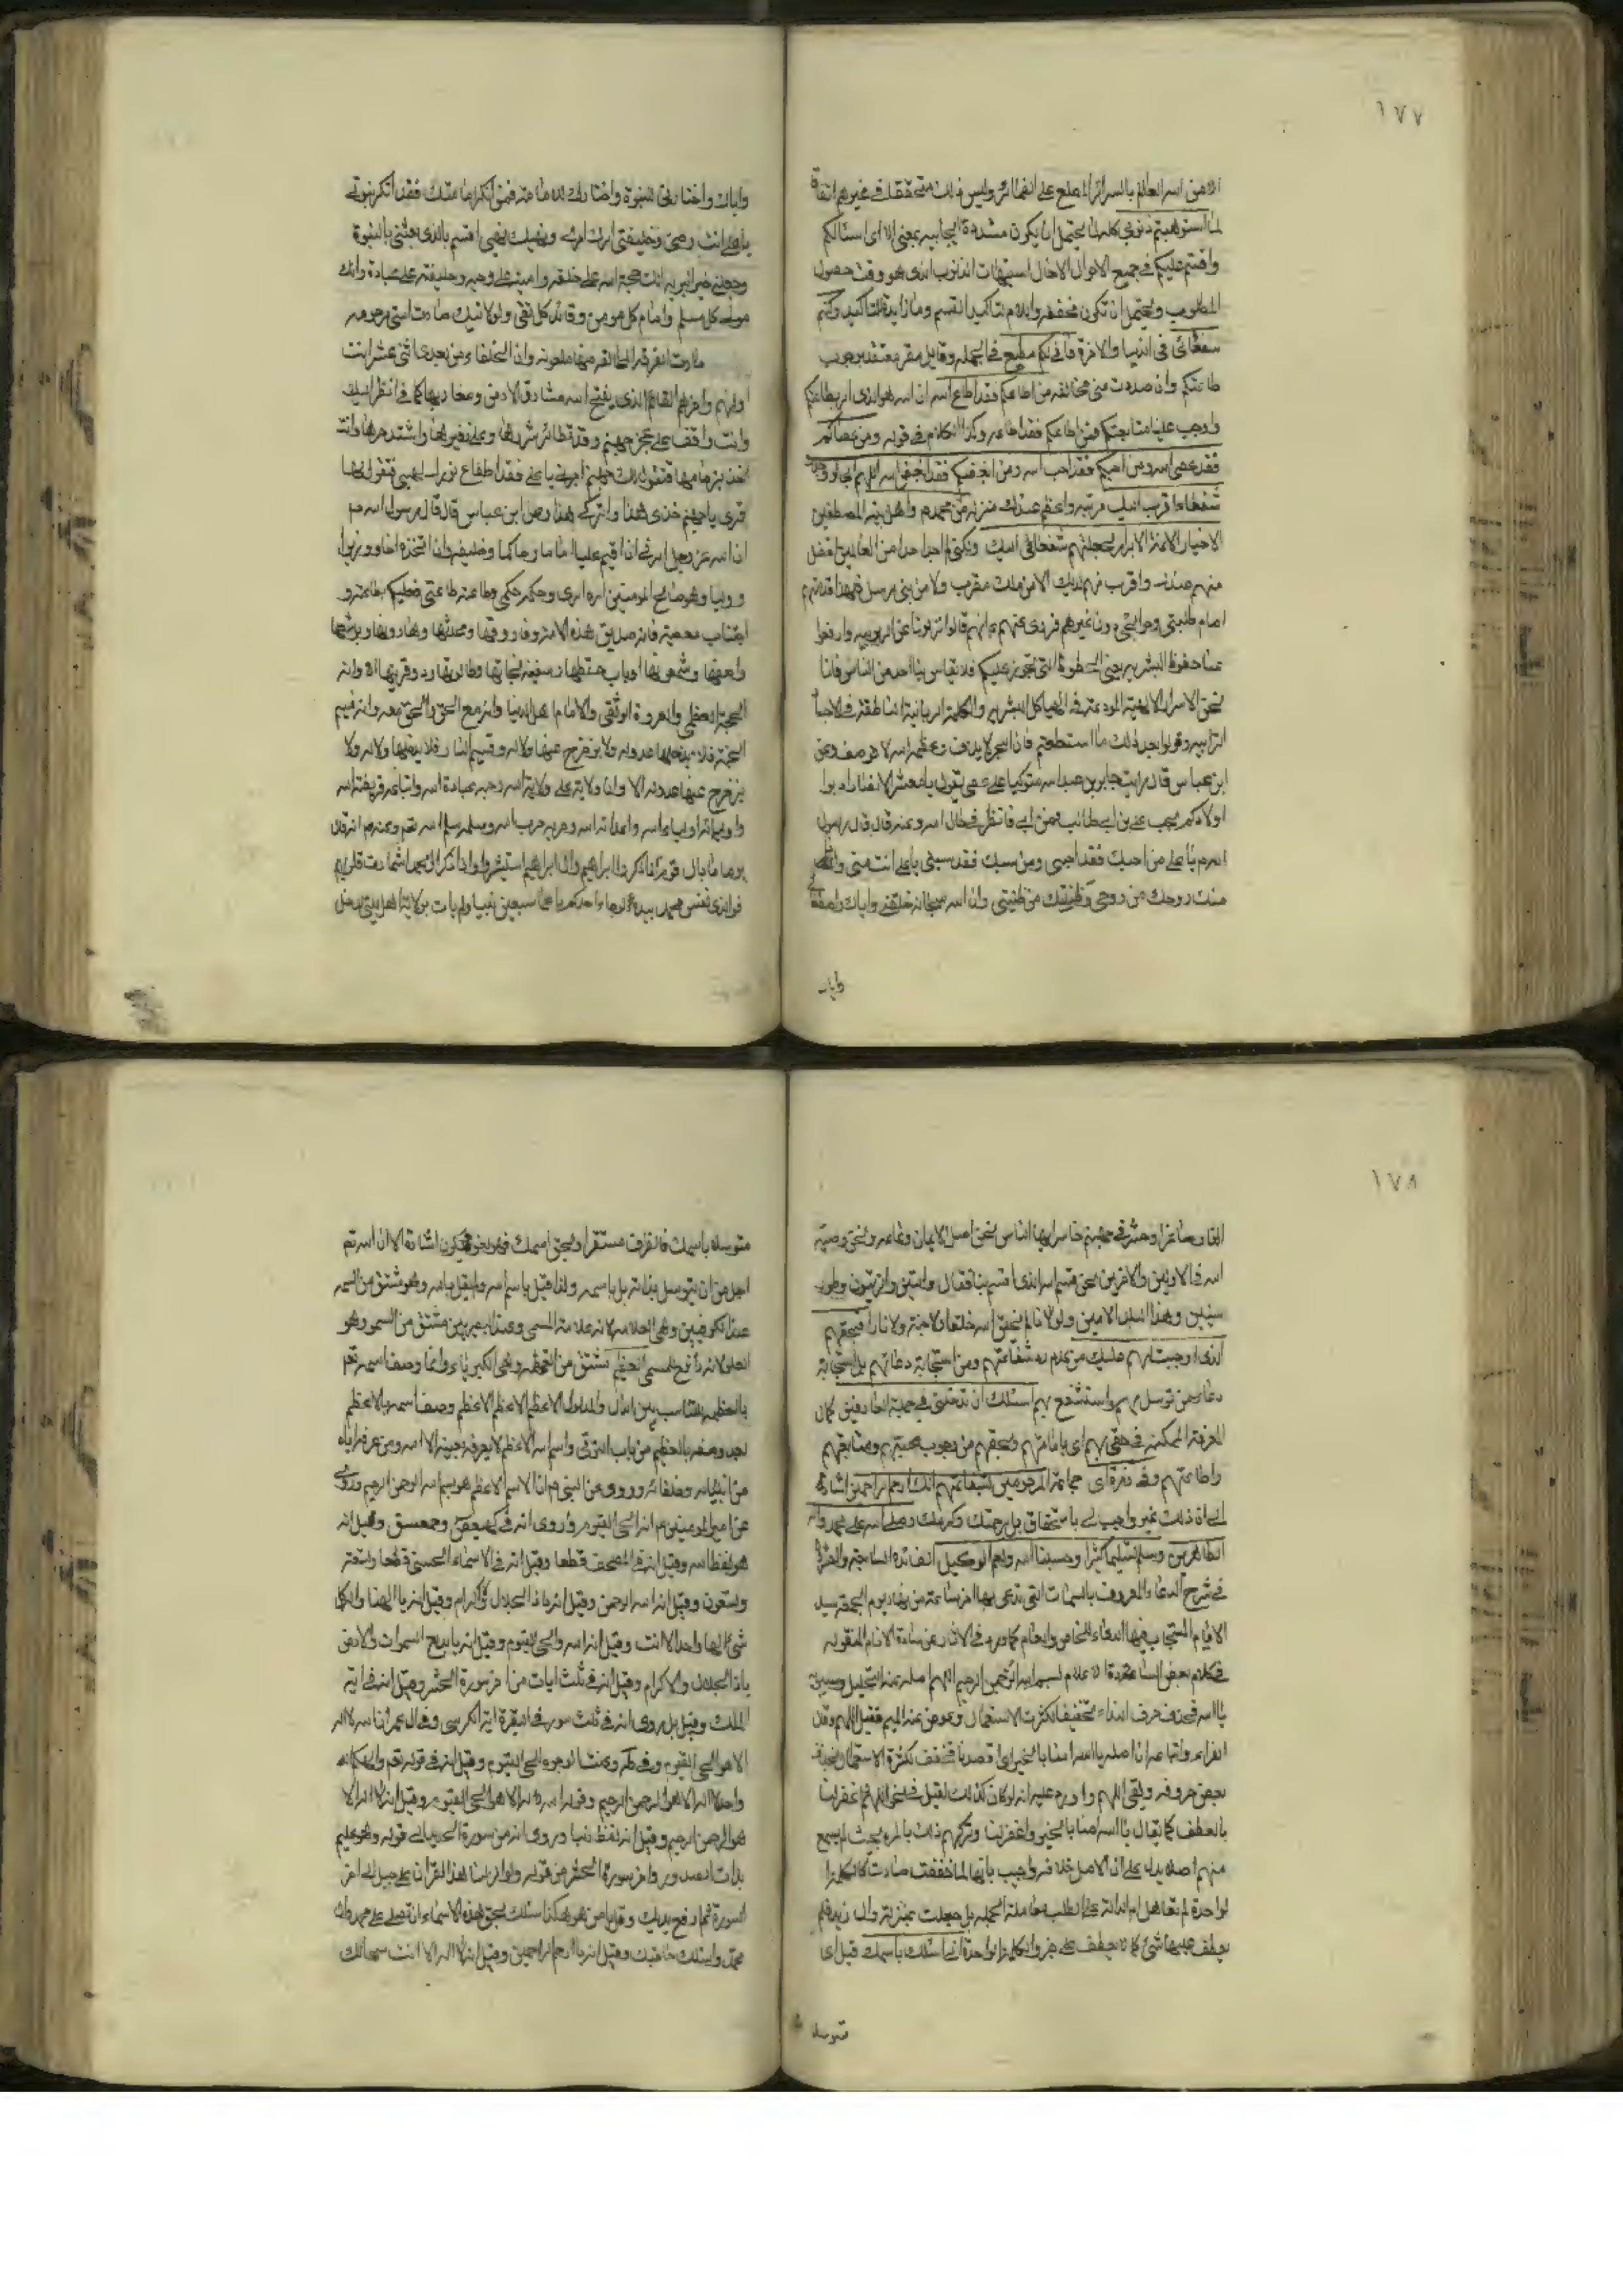 ١٧٧
الا من اسرار العالم بالسرائر المطلع على الضمائر وليس ذلك متحققا في غيرهم اتفاقا
لما استوهبتم ذنوبي كلمة لما يحتمل ان يكون مشددة ايجابية بمعنى الا اى اسئالكم
واقسم عليكم في جميع الاحوال الا حال استيهاب الذنوب الذى هو وقت حصول
المطلوب ويحتمل ان تكون مخففة واللام لتاكيد القسم وما زايدة للتاكيد وكنتم
شفعائى في الدنيا والاخرة فانى لكم مطيع في الجملة وقايل مقر معتقد بوجوب
طاعتكم وان صدرت منى مخالفة من اطاعكم فقد اطاع الله ان الله هو الذى امر بطاعتكم
واوجب علينا متابعتكم فمن اطاعكم فقد اطاعه وكذا الكلام في قوله ومن عصاكم
فقد عصى الله ومن احبكم فقد احب الله ومن ابغضكم فقد ابغض الله اللهم انى لو وجدت
شفعاء اقرب اليك مرتبة واعظم عندك منزلة من محمد م واهل بيته المصطفين
الاخيار الائمة الابرار لجعلتهم شفعائى اليك ولكنى لم اجد احدا من العالمين افضل
منهم عندك واقرب منهم لديك لا من ملك مقرب ولا من نبى مرسل فلهذا قدمتهم
امام طلبتى وحوائجى دون غيرهم فروى عنهم ع انهم قالوا نزلونا عن الربوبية وارفعوا
عنا حظوظ البشرية يعنى الحظوظ التى تجوز عليكم فلا يقاس بنا احد من الناس فانا
نحن الاسرار الالهية المودعة في الهياكل البشرية والكلمة الربانية الناطقة في الاجساد
الترابية وقولوا بعد ذلك ما استطعتم فان البحر لا ينزف وعظمة الله لا توصف وعن
ابن عباس قال رايت جابر بن عبد الله متوكيا على عصى يقول يا معشر الانصار ادبوا
اولادكم بحب على بن ابى طالب فمن ابى فانظروا في حال امه وعنه قال قال رسول
الله م يا على من احبك فقد احبنى ومن سبك فقد سبنى يا على انت منى وانا
منك روحك من روحى وطينتك من طينتى وان الله سبحانه خلقنى واياك واصطفانى
واياك
واياك واختارنى للنبوة واختارك للامامة فمن انكر امامتك فقد انكر نبوتى
يا على انت وصيى وخليفتى امرك امرى ونهيك نهيى اقسم بالذى بعثنى بالنبوة
وجعلنى خير البرية انك حجة الله على خلقه وامينه على وحيه وخليفته على عباده وانك
مولى كل مسلم وامام كل مومن وقائد كل تقى وبولايتك صارت امتى مرحومة
صارت الفرقة المخالفة منها ملعونة وان الخلفاء من بعدى اثنى عشر انت
اولهم واخرهم القائم الذى يفتح الله مشارق الارض ومغاربها كانى انظر اليك
وانت واقف على عجز جهنم وقد تطائر شررها وعلا زفيرها واشتد حرها وانت
اخذ بزمامها فتقول لك جهنم اجرنى يا على فقد اطفاء نورك لهبى فتقول لها
قرى يا جهنم خذى هذا واتركى هذا وعن ابن عباس قال قال رسول الله م
ان الله عز وجل امرنى ان اقيم عليا اماما وحاكما وخليفة وان اتخذه اخا ووزيرا
ووليا وهو صالح المومنين امره امرى وحكمه حكمى وطاعته طاعتى فعليكم بطاعته و
اجتناب معصيته فانه صديق هذه الامة وفاروقها ومحدثها وهارونها ويوشعها
واصفها وشمعونها باب حطتها وسفينة نجاتها وطالوتها وذو قرنيها الا وانه
الحجة العظمى والعروة الوثقى والامام اهل الدنيا وانه مع الحق والحق معه وانه قسيم
الجنة فلا يدخلها عدو له ولا يزحزح عنها ولى له وقسيم النار فلا يدخلها ولى له ولا
يزحزح عنها عدو له الا وان ولاية على ولاية الله وحبه عبادة الله واتباعه فريضة الله
واوليائه اولياء الله واعدائه اعداء الله وحربه حرب الله وسلمه سلم الله تعم وعنه م انه قال
يوما ما بال قوم اذا ذكر ال ابراهيم وال ابراهيم استبشروا واذا ذكر ال محمد اشمازت قلوبهم
فوالذى نفس محمد بيده لو جاء احدكم باعمال سبعين نبيا ولم يات بولاية اهل بيتى لدخل
١٧٨
النار صاغرا وحشر في جهنم خاسرا ايها الناس نحن اصل الايمان وتمامه ونحن وصية
الله في الاولين والاخرين نحن قسم الله الذى اقسم بنا فقال والتين والزيتون وطور
سينين وهذا البلد الامين ولولا نا لم يخلق الله خلقا ولا جنة ولا نارا فبحقهم
الذى اوجبت لهم عليك من عدم رد شفاعتهم ومن استجابة دعائهم بل استجابة
دعاء من توسل بهم واستشفع بهم اسئلك ان تدخلنى في جملة العارفين كمال
المعرفة الممكنة في حقى بهم اى بامامتهم وبحقهم من وجوب محبتهم ومتابعتهم
واطاعتهم وفى زمرة اى جماعة المرحومين بشفاعتهم انك ارحم الراحمين اشارة
الى ان ذلك غير واجب لى باستحقاق بل برحمتك وكرمك وصلى الله على محمد واله
الطاهرين وسلم تسليما كثيرا وحسبنا الله ونعم الوكيل الفائدة السابعة والعشرون
في شرح الدعاء المعروف بالسمات التى تدعى بها اخر ساعة من نهار يوم الجمعة سيد
الايام المستجاب فيها الدعاء للخاص والعام كما ورد في الاثار عن سادة الانام المنقولة
في كلام بعض اساتذة الاعلام بسم الله الرحمن الرحيم اللهم اصله عند الخليل وسيبويه
يا الله فحذف حرف النداء تخفيفا لكثرة الاستعمال وعوض عنه الميم فقيل اللهم وقال
الفراء واتباعه ان اصله يا الله امنا بالخير اى اقصدنا فخفف لكثرة الاستعمال بحذف
بعض حروفه وبقى اللهم واورد عليه انه لو كان كذلك لقيل في نحو اللهم اغفر لنا
بالعطف كما يقال يا الله امنا بالخير واغفر لنا وتركهم ذلك بالمرة بحيث لم يسمع
منهم اصلا يدل على ان الاصل خلافه واجيب بانها لما خففت صارت كالكلمة
الواحدة لم تعامل الدالة على الطلب معاملة الجملة بل جعلت بمنزلة دال زيد فلم
يعطف عليها شئ كما لا يعطف على جزء الكلمة الواحدة انى اسئلك باسمك قيل اى
متوسلا
متوسلا باسمك فالظرف مستقر او بحق اسمك فهو لغو فيكون اشارة الى ان الله تعم
اجل من ان يتوسل بذاته بل باسمه ولذا قيل باسم الله ولم يقل بالله وهو مشتق من السمه
عند الكوفيين وهى العلامة لانه علامة للمسمى وعند البصريين مشتق من السمو وهو
العلو لانه رافع للمسمى العظيم مشتق من العظمة وهى الكبرياء وانما وصف اسمه تعم
بالعظمة للتناسب بين الدال والمدلول الاعظم الاعظم الاعظم وصف اسمه بالاعظم
بعد وصفه بالعظيم من باب الترقى واسم الله الاعظم لا يعرفه بعينه الا الله ومن عرفه اياه
من انبيائه وخلفائه وروى عن النبى م ان الاسم الاعظم هو بسم الله الرحمن الرحيم وروى
عن امير المومنين م انه الحى القيوم وروى انه في كهيعص وحمعسق وقيل انه
هو لفظ الله وقيل انه في المصحف قطعا وقيل انه في الاسماء الحسنى قطعا وتسعة
وتسعون وقيل انه الله الرحمن وقيل انه يا ذا الجلال والاكرام وقيل انه يا الهنا واله كل
شئ الها واحدا لا اله الا انت وقيل انه الله والحى القيوم وقيل انه يا بديع السموات والارض
يا ذا الجلال والاكرام وقيل انه في ثلث ايات من اخر سورة الحشر وقيل انه في اية
الملك وقيل بل روى انه في ثلث سور في البقرة اية الكرسى وفي ال عمران الله لا اله
الا هو الحى القيوم وفي طه وعنت الوجوه للحى القيوم وقيل انه في قوله تعم والهكم اله
واحد لا اله الا هو الرحمن الرحيم وقوله الله لا اله الا هو الحى القيوم وقيل انه لا اله الا
هو الرحمن الرحيم وقيل انه لفظ ربنا وروى انه من سورة الحديد الى قوله وهو عليم
بذات الصدور واخر سورة الحشر من قوله ولو انزلنا هذا القران على جبل الى اخر
السورة ثم ارفع يديك وقل يا من هو هكذا اسئلك بحق هذه الاسماء ان تصلى على محمد وال
محمد واسئلك حاجتك وقيل انه يا ارحم الراحمين وقيل انه لا اله الا انت سبحانك